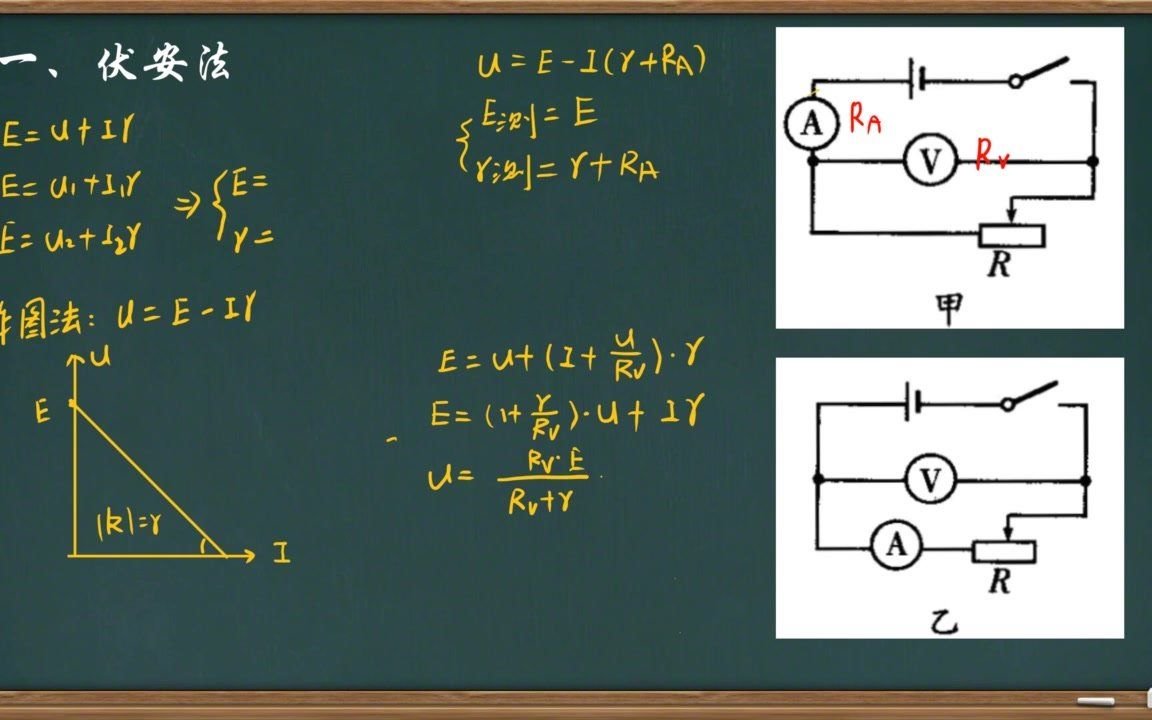 一、伏安法
E=U+Ir
E=U₁+I₁r
E=U₂+I₂r
⇒{E=
r=
作图法：U=E-Ir
U
E
|k|=r
I
U=E-I(r+R_A)
{E测=E
r测=r+R_A
E=U+(I+U/R_V)·r
E=(1+r/R_V)·U+Ir
U=R_V·E/(R_V+r)
A
R_A
V
R_V
R
甲
V
A
R
乙